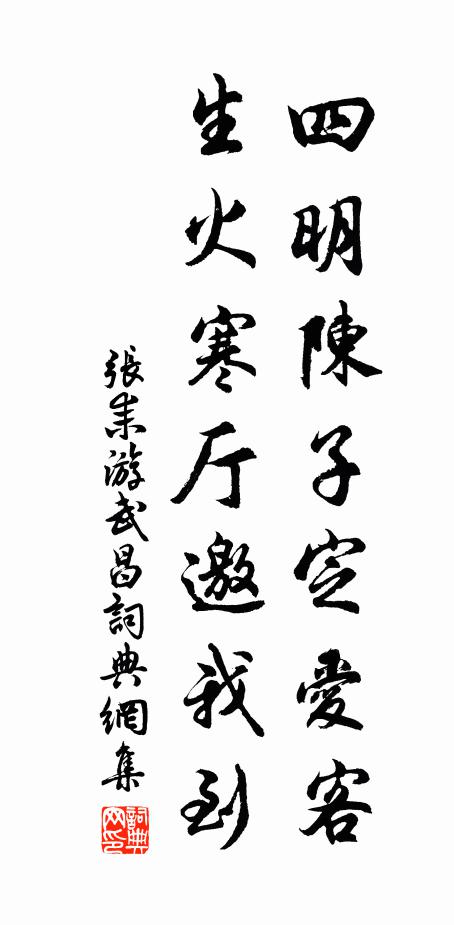 四明陳子定愛客
生火寒厅邀我到
張耒游武昌詞典網集
詞典网印